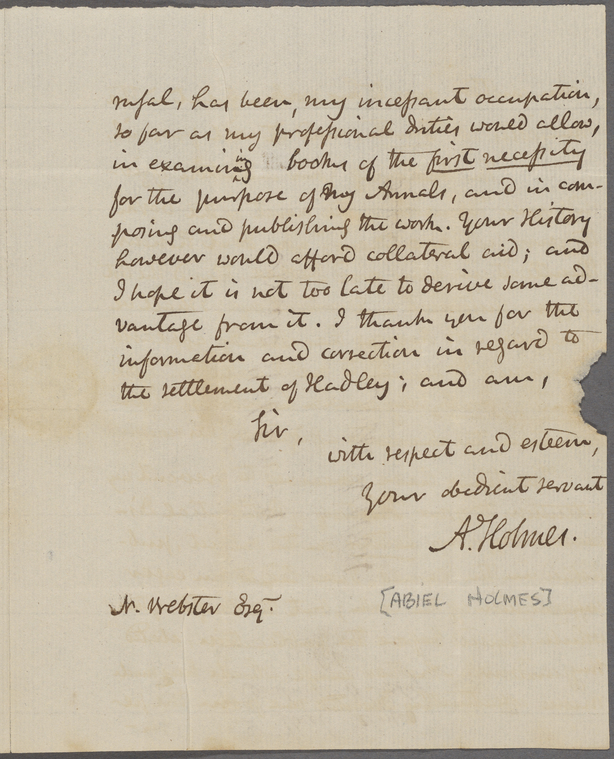 rusal, has been, my incessant occupation,
so far as my professional duties would allow,
in examining books of the first necessity
for the purpose of my Annals, and in com-
posing and publishing the work. Your History
however would afford collateral aid; and
I hope it is not too late to derive some ad-
vantage from it. I thank you for the
information and correction in regard to
the settlement of Hadley; and am,
Sir,
with respect and esteem,
Your obedient servant
A. Holmes.
N. Webster Esqr.
[ABIEL HOLMES]